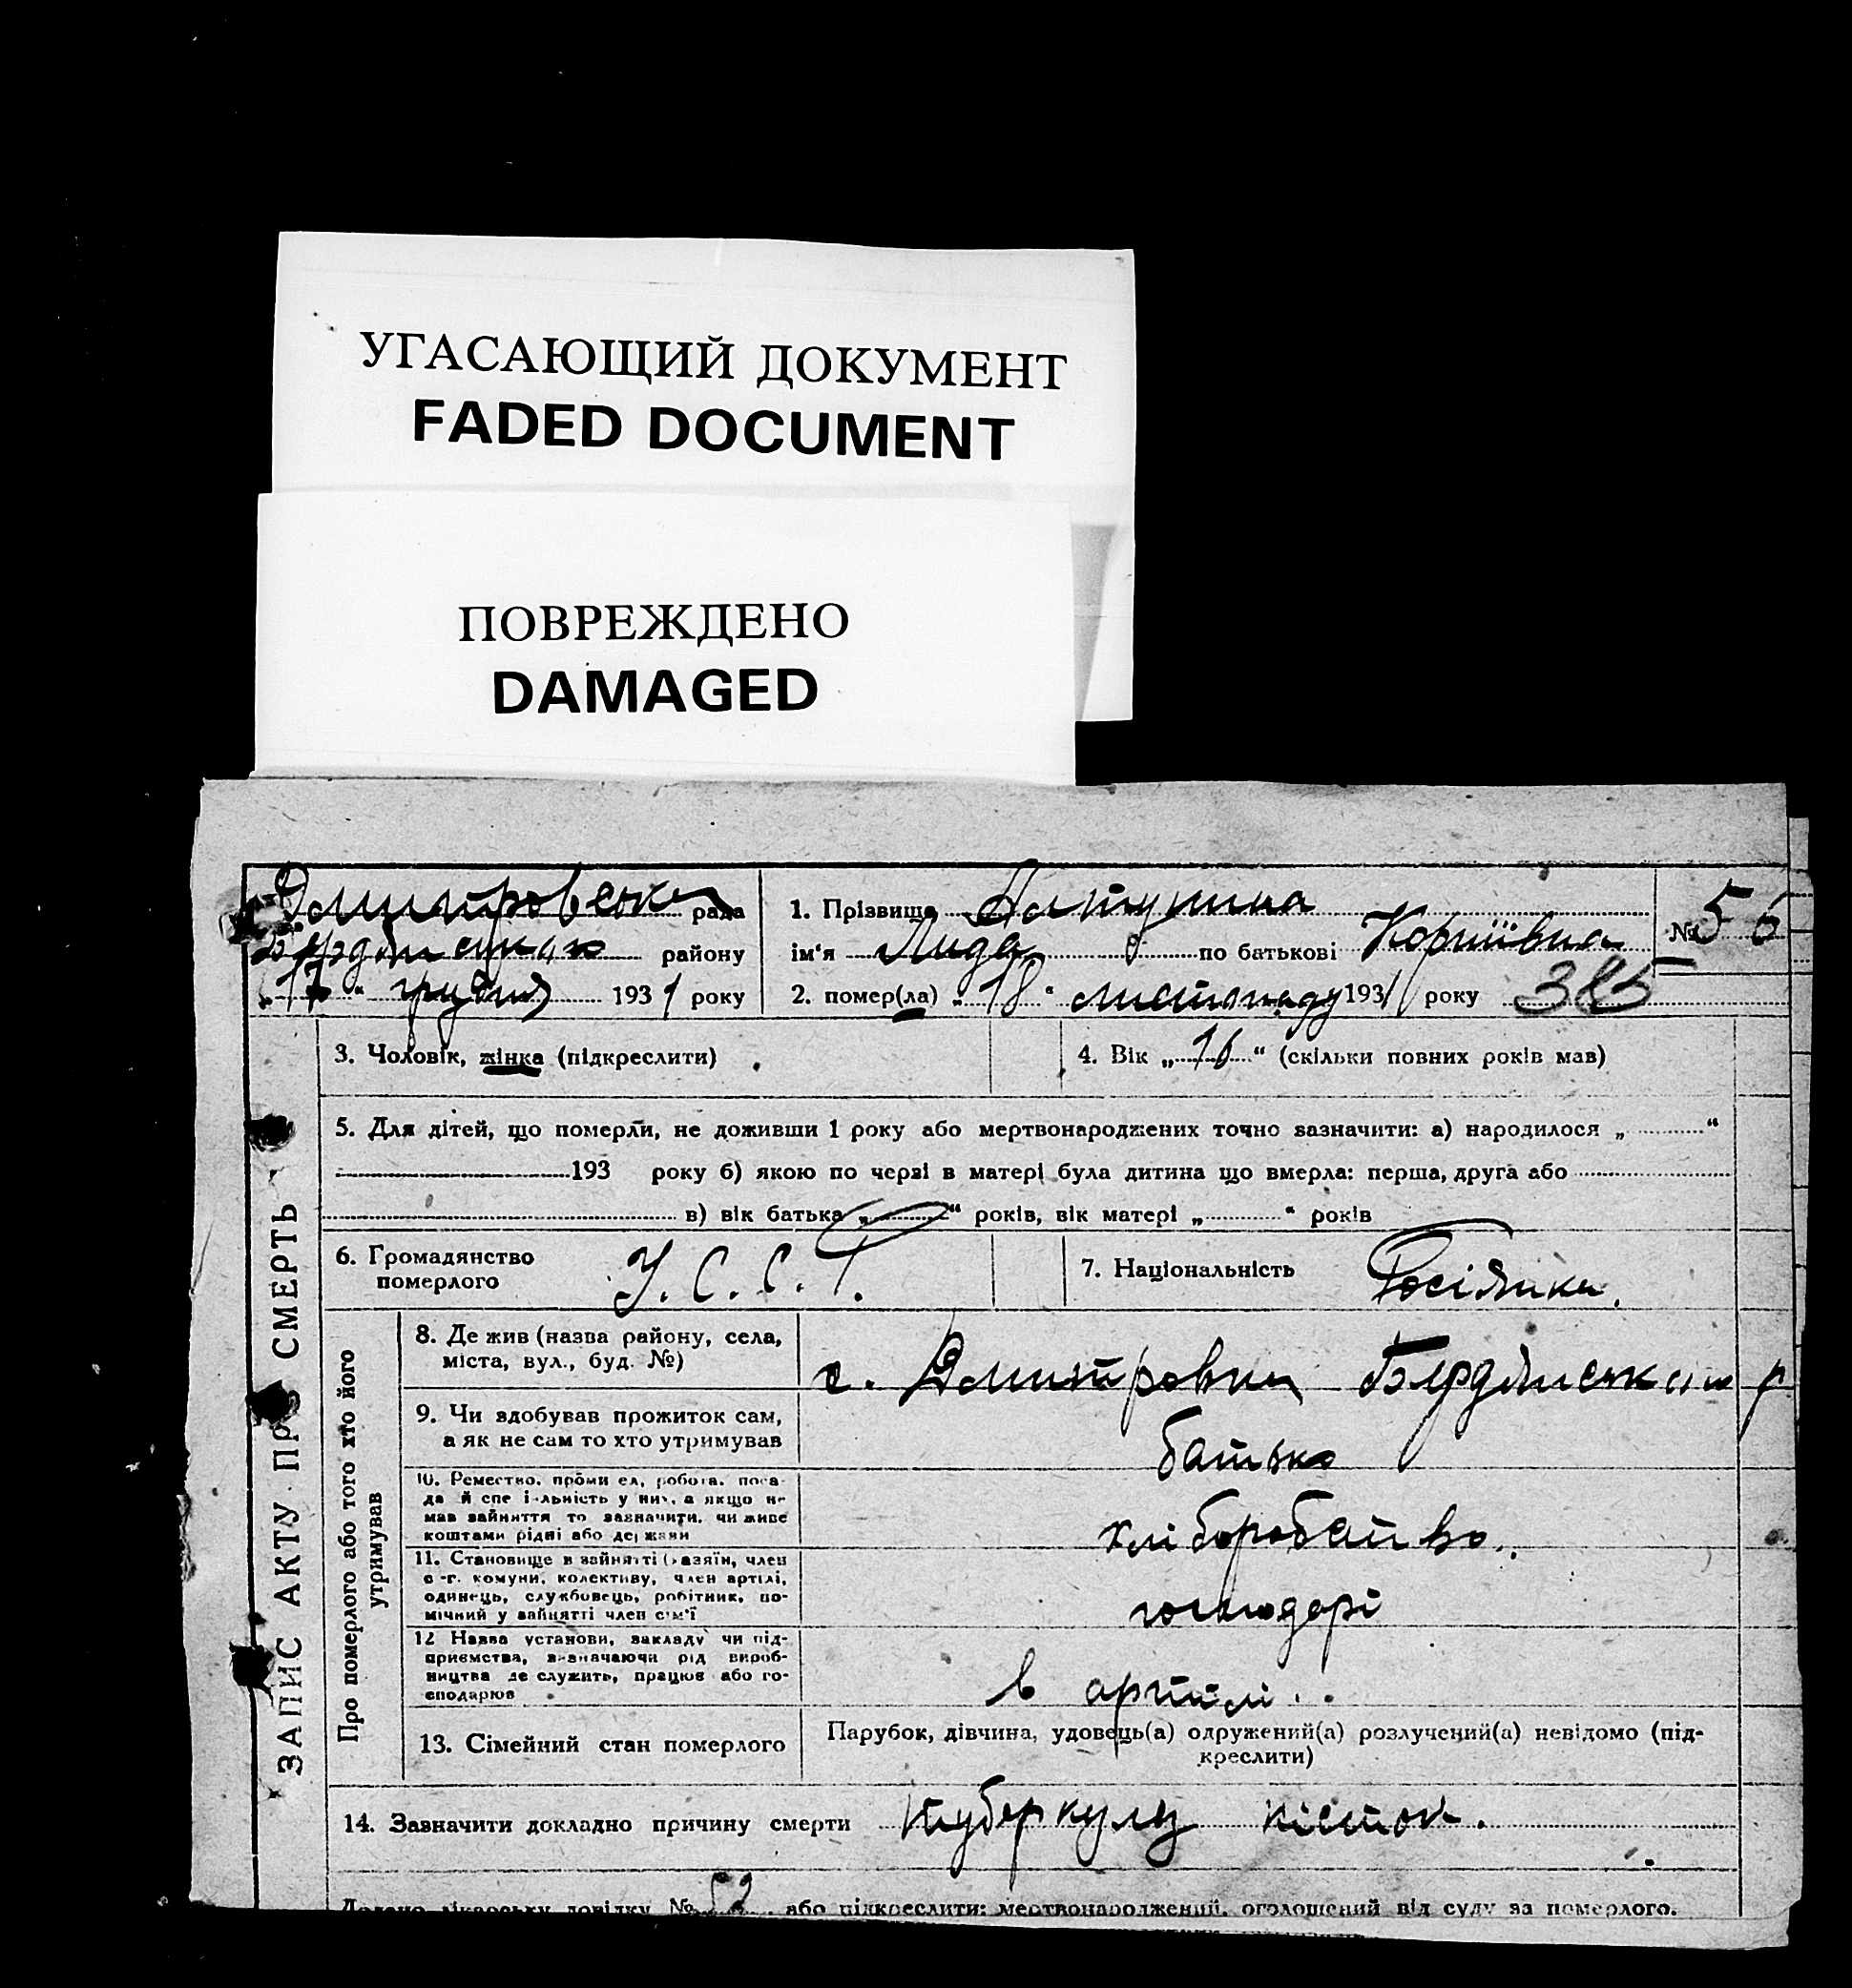 УГАСАЮЩИЙ ДОКУМЕНТ
FADED DOCUMENT
ПОВРЕЖДЕНО
DAMAGED
Дмитровська рада
району
„17“ грудня 1931 року
1. Прізвище
ім'я Лида по батькові Корніївна
2. помер(ла) „18“ листопаду 1931 року 385
№ 56
3. Чоловік, жінка (підкреслити)
4. Вік „16“ (скільки повних років мав)
5. Для дітей, що померли, не доживши 1 року або мертвонароджених точно зазначити: а) народилося „ “
193 року б) якою по черзі в матері була дитина що вмерла: перша, друга або
в) вік батька „ “ років, вік матері „ “ років
6. Громадянство
померлого
У.С.С.Р.
7. Національність Росіянка.
ЗАПИС АКТУ ПРО СМЕРТЬ
Про померлого або того хто його
утримував
8. Де жив (назва району, села,
міста, вул., буд. №)
с. Дмитровка р.
9. Чи здобував прожиток сам,
а як не сам то хто утримував
батько
10. Ремество, проми ел, робота, поса-
да й спе і-льність у них, а якщо не
мав зайняття то зазначити, чи живе
коштами рідні або держави
хліборобство.
11. Становище в зайнятті (хазяїн, член
с-г. комуни, колективу, член артілі,
одинець, службовець, робітник, по-
мічний у зайнятті член сім'ї
господарі
12 Назва установи, закладу чи під-
приємства, визначаючи рід вироб-
ництва де служить, працює або го-
сподарює
в артілі.
13. Сімейний стан померлого
Парубок, дівчина, удовець(а) одружений(а) розлучений(а) невідомо (під-
креслити)
14. Зазначити докладно причину смерти туберкулз кісток.
Додано лікарську довідку № 52 або підкреслити: мертвонароджений, оголошений від суду за померлого.